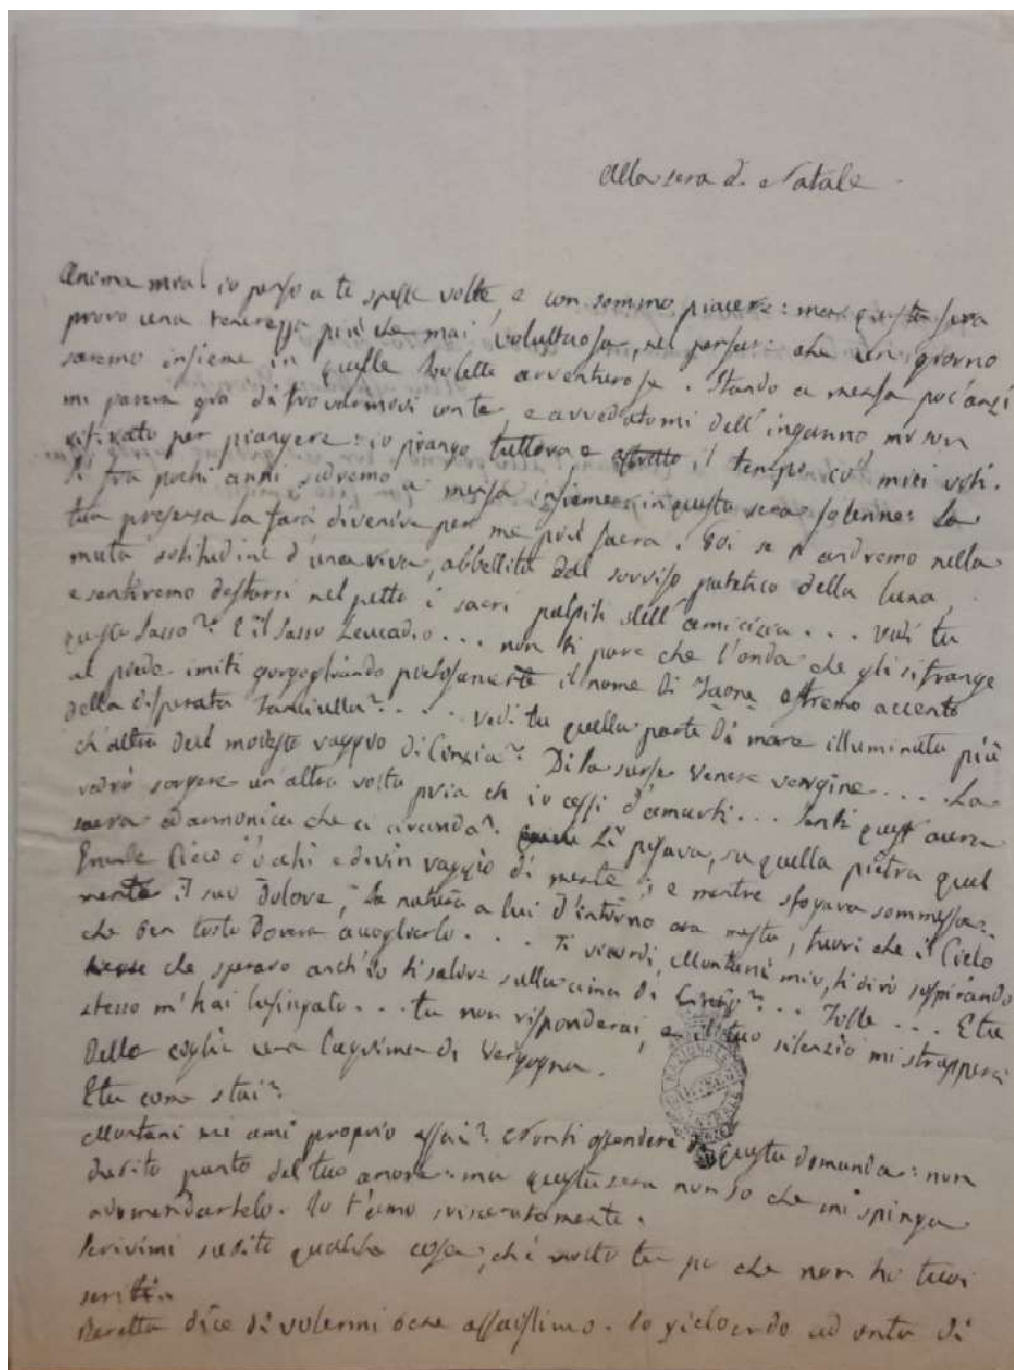 Alla sera di Natale
Anima mia! io penso a te spesse volte e con sommo piacere: ma questa sera
provo una tenerezza più che mai voluttuosa, nel pensar: che un giorno
saremo insieme in quelle Isolette avventurose. Stando a mensa poc'anzi
mi parea già di trovarmovi con te, e avvedutomi dell'inganno mi son
ritirato per piangere: io piango tuttora e affretto il tempo co' miei voti.
Sì fra pochi anni sedremo a mensa insieme in questa sera solenne: La
tua presenza la farà divenire per me più sacra. Poi se n'andremo nella
muta solitudine d'una riva, abbellita dal sorriso patetico della luna,
e sentiremo destarsi nel petto i sacri palpiti dell'amicizia... Vedi tu
questo sasso? È il sasso Leucadio... non ti pare che l'onda che gli si frange
al piede imiti gorgogliando pietosamente il nome di Faone estremo accento
della disperata fanciulla?.... Vedi tu quella parte di mare illuminata più
ch'altra dal modesto raggio di Cinzia? Di là surse Venere vergine.... La
vedrò sorgere un'altra volta pria ch'io cessi d'amarti... Senti quest'aura
sacra ed armonica che ci circonda? Lì posava, su quella pietra quel
Grande Cieco d'occhi e divin raggio di mente; e mentre sfogava sommessa-
mente il suo dolore, la natura a lui d'intorno era mesta, fuori che il Cielo
che ben tosto dovea accoglierlo.... Ti ricordi, Montani mio, ti dirò sospirando
che speravo anch'io di salire sulla cima di?... Folle... E tu
stesso m'hai lusingato... tu non risponderai, e il tuo silenzio mi strapperà
dalle ciglia una lagrima di vergogna.
E tu come stai?
Montani mi ami proprio assai? Non ti offendere di questa domanda: non
dubito punto del tuo amore: ma questa sera non so che mi spinga
a domandartelo. Io t'amo svisceratamente.
Scrivimi subito qualche cosa, ch'è molto tempo che non ho tuoi
scritti.
Beretta dice di volermi bene assaissimo. Io glielo credo ad onta di